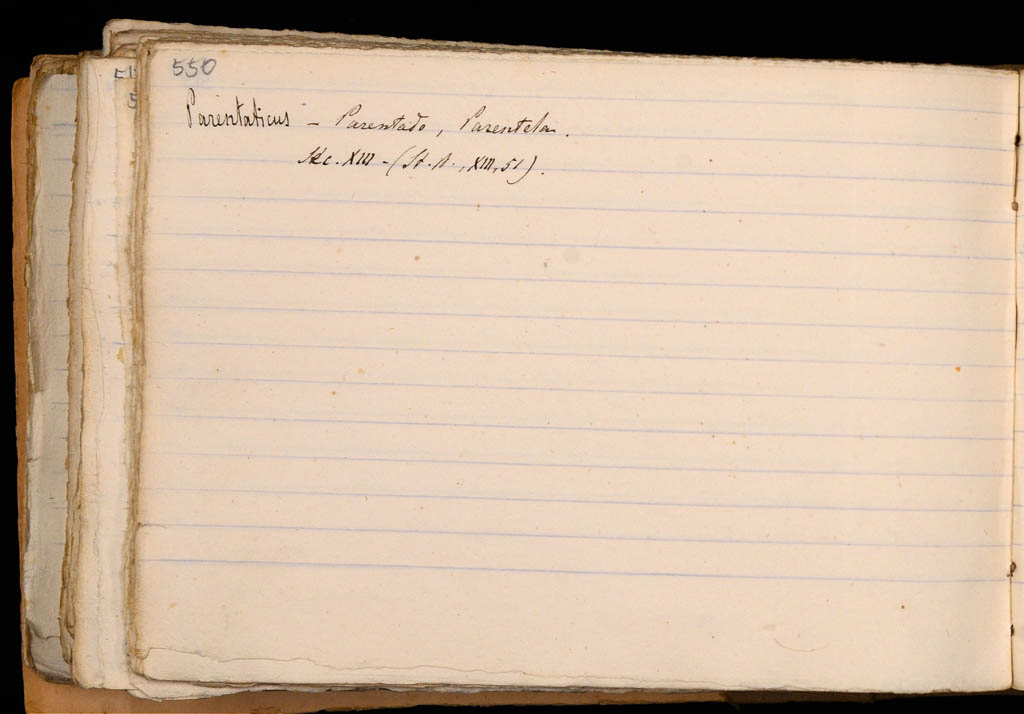 550
Parentaticus – Parentado, Parentela.
Sec. XIII – (St. A., XIII, 51).